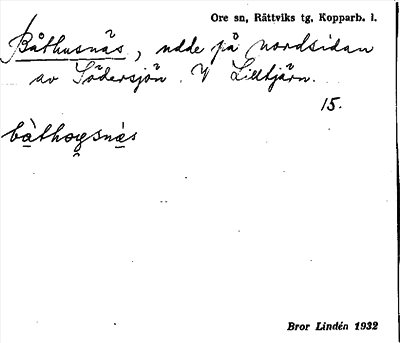 Ore sn, Rättviks tg, Kopparb. l.
Båthusnäs, udde på nordsidan
av Södersjön. V Lilltjärn.
15.
Bror Lindén 1932